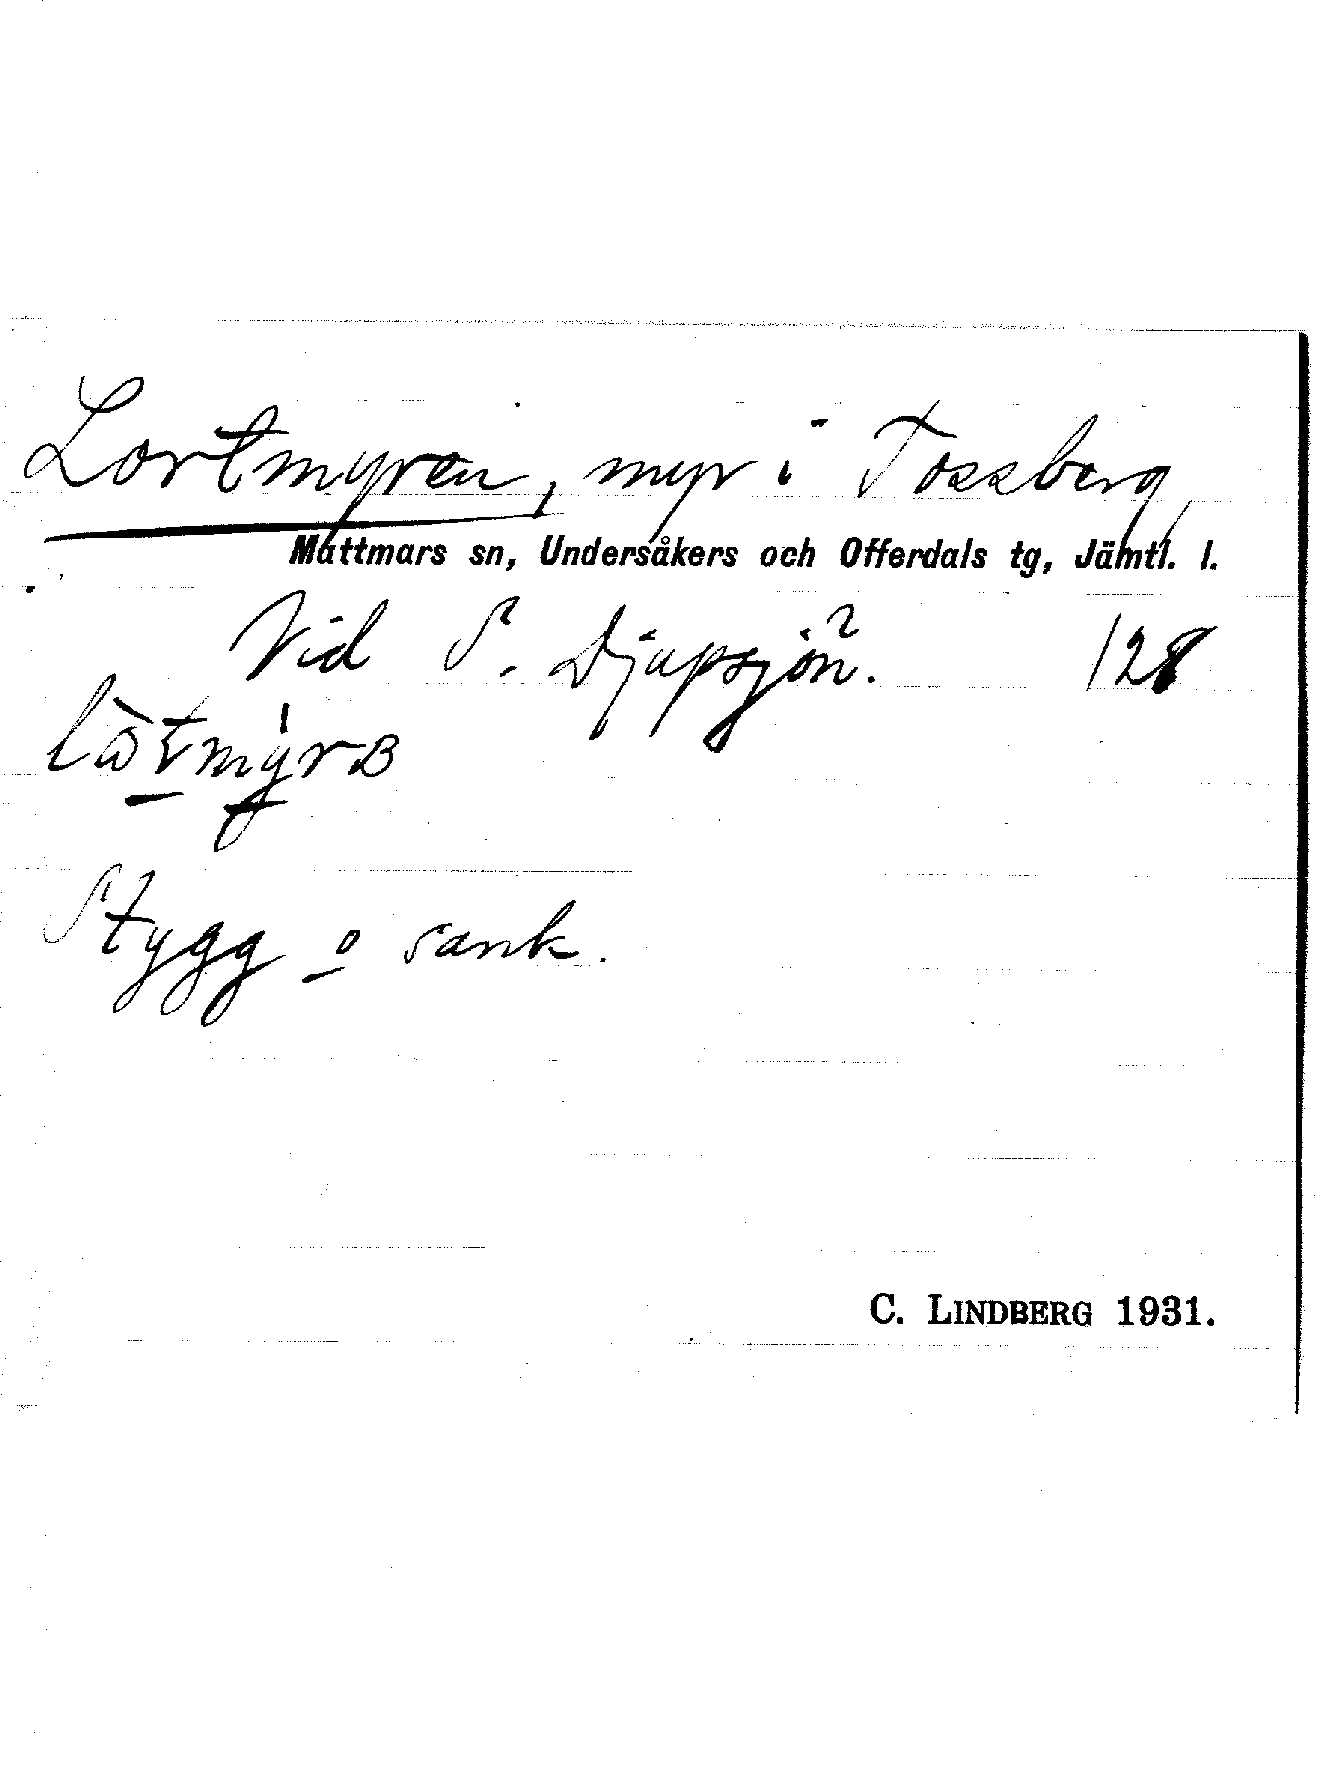 Lortmyren, myr i Tossberg
Mattmars sn, Undersåkers och Offerdals tg, Jämtl. l.
Vid S. Djupsjön. 128
Stygg o sank.
C. LINDBERG 1931.